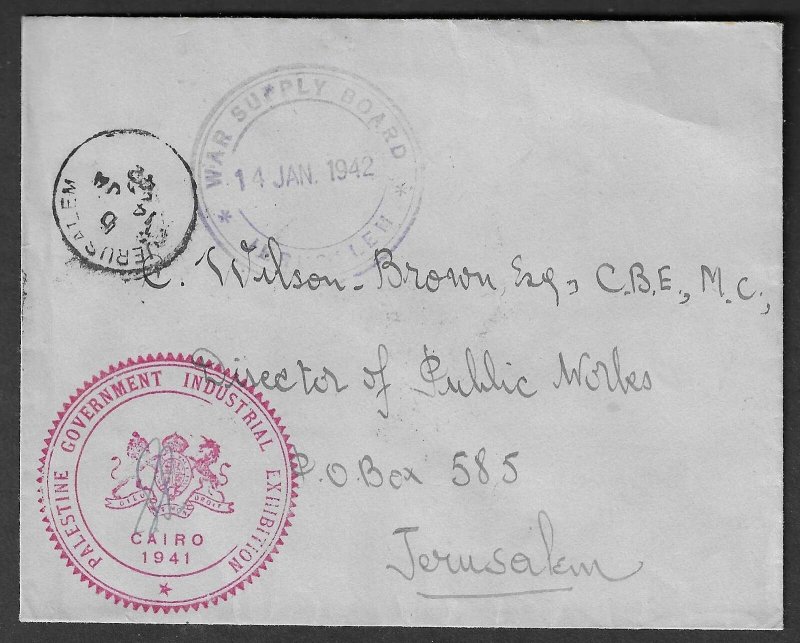 WAR SUPPLY BOARD
14 JAN. 1942
JERUSALEM
JERUSALEM
C. Wilson-Brown, Esq., C.B.E., M.C.,
Director of Public Works
P.O. Box 585
Jerusalem
PALESTINE GOVERNMENT INDUSTRIAL EXHIBITION
DIEU ET MON DROIT
CAIRO
1941